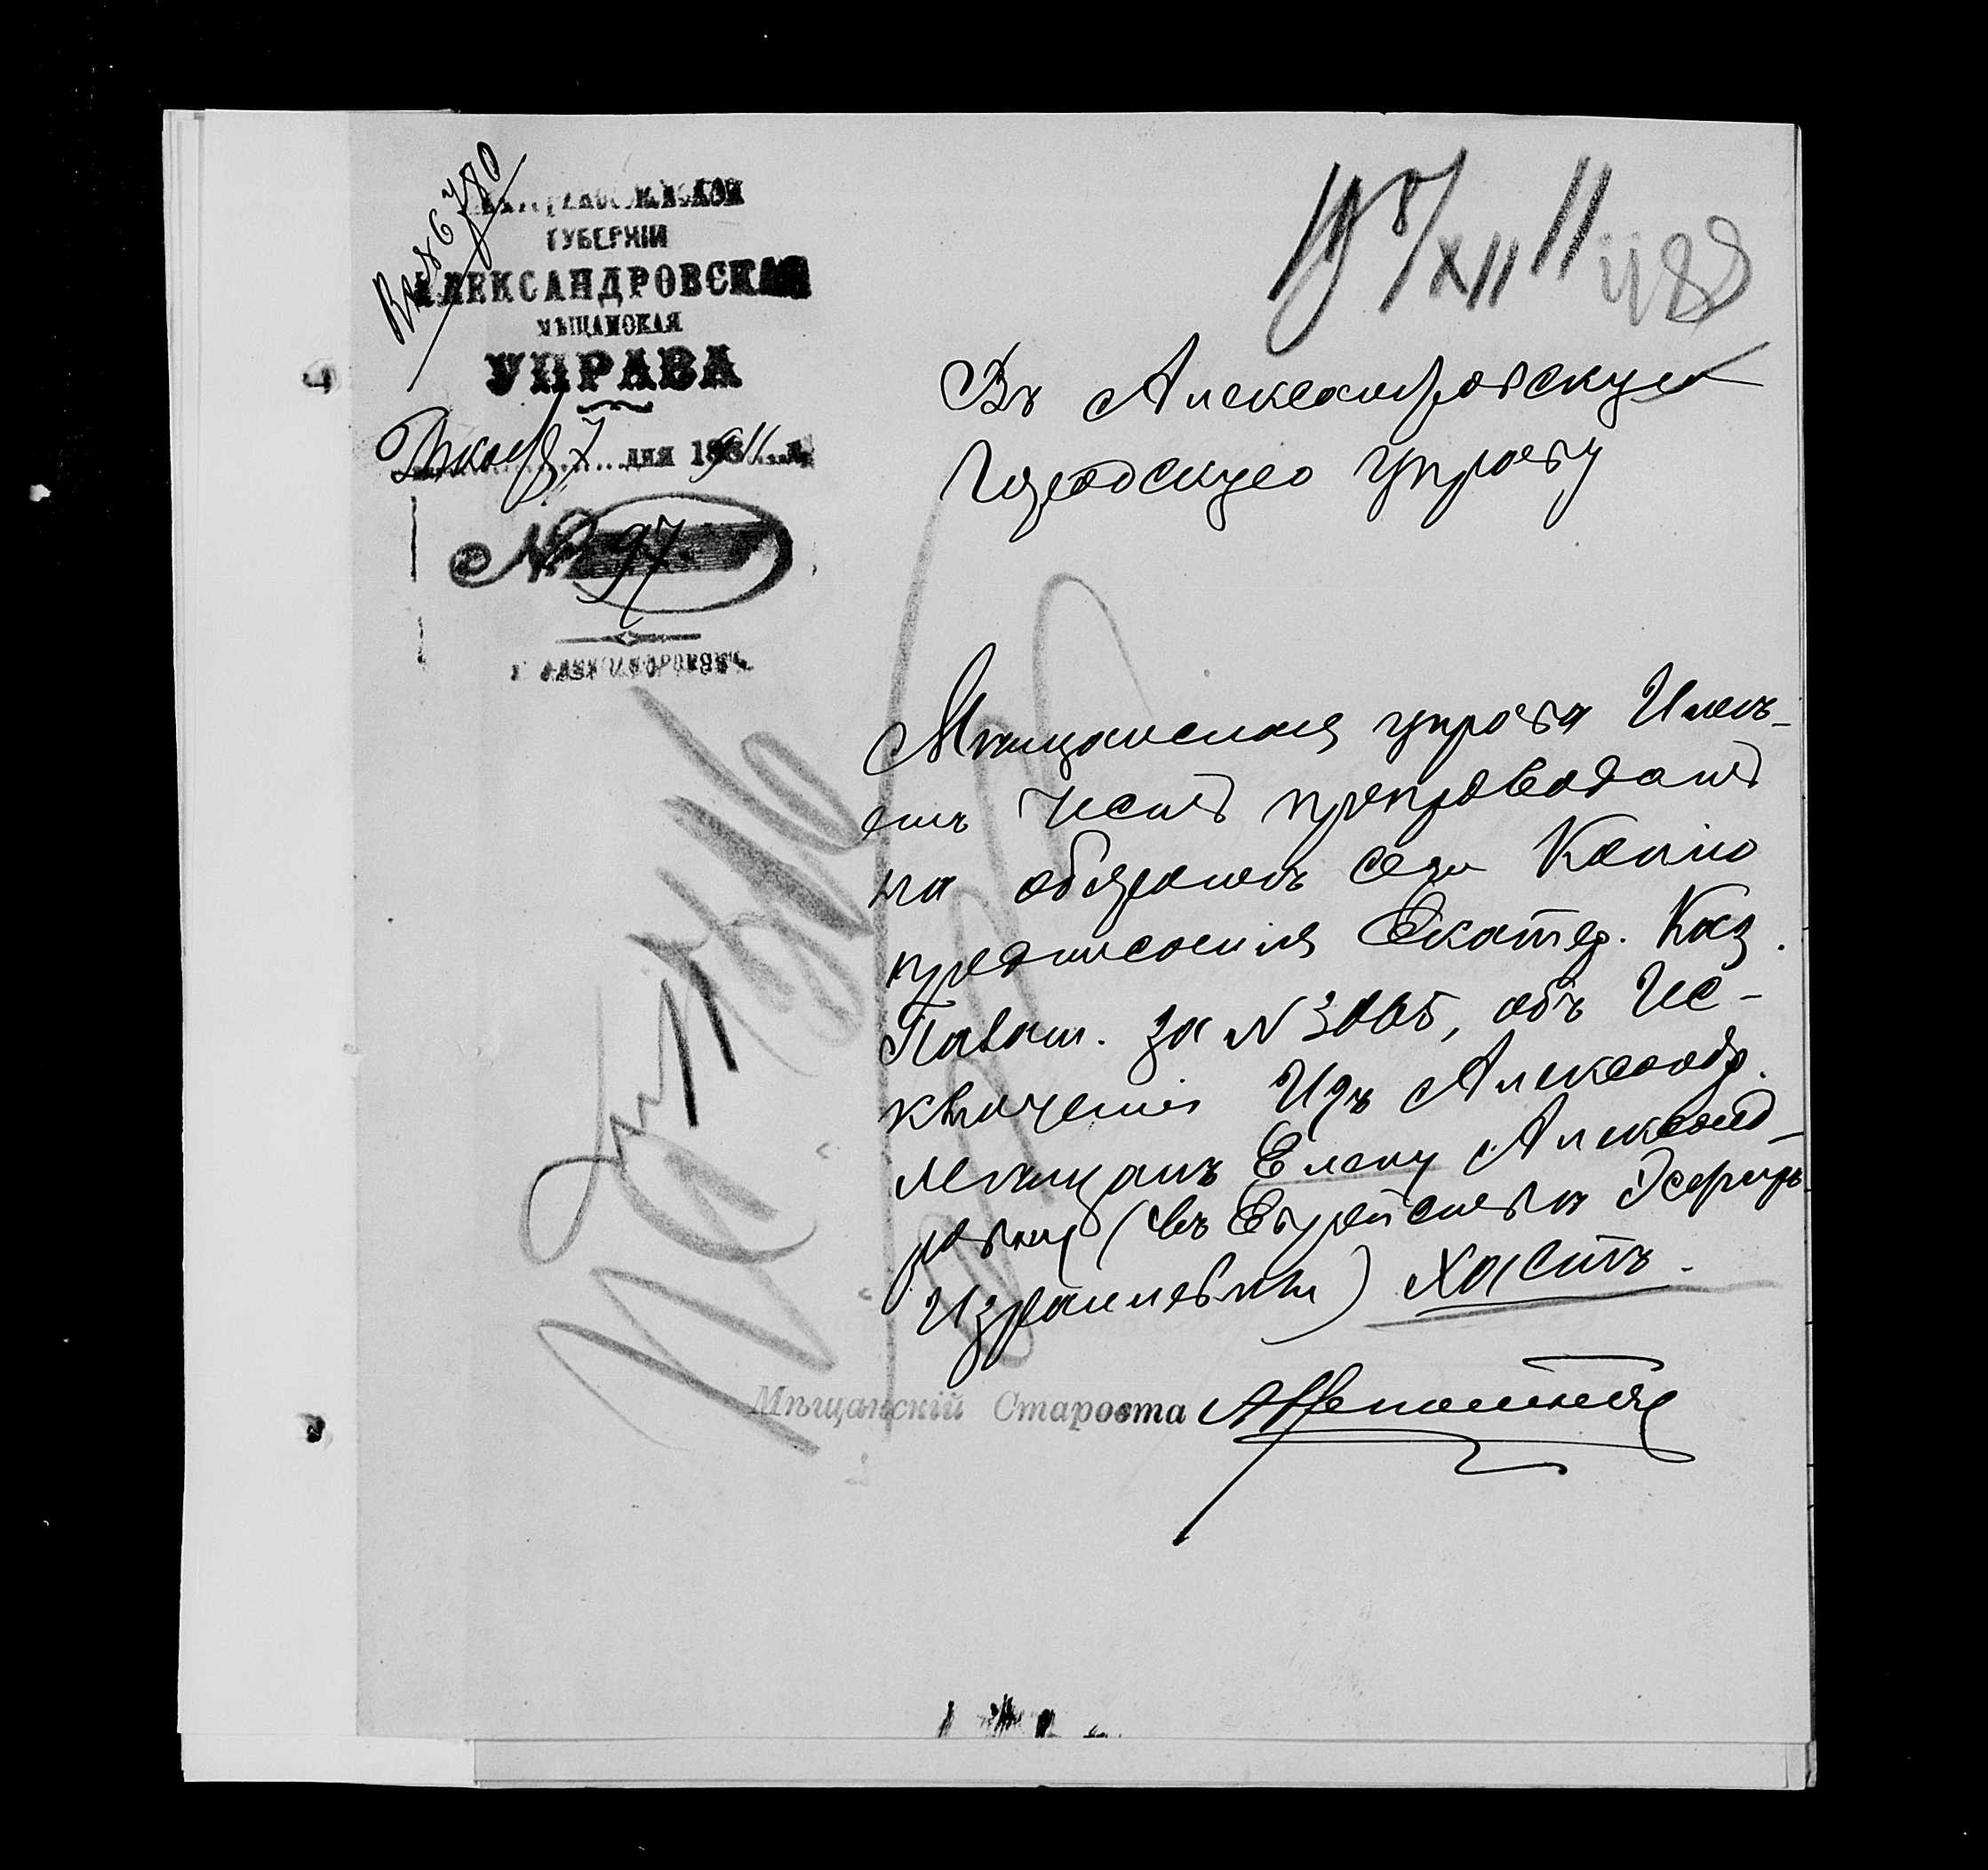 Вх № 6780
ЕКАТЕРИНОСЛАВСКОЙ
ГУБЕРНІИ
АЛЕКСАНДРОВСКАЯ
МѢЩАНСКАЯ
УПРАВА
Декабр 7 дня 1911 г.
№ 97
Г. АЛЕКСАНДРОВСКЪ
8/XII 11
Въ Александровскую
Городскую Управу
Мѣщанская управа Имѣ-
етъ честь препроводить
на обороте сего Копію
предписанія Екатер. Каз.
Палат. за № 3005, объ Ис-
ключеніи Изъ Александр.
мѣщанъ Елену Александ-
ровну (въ Еврействѣ
Израилевны) Хасинъ.
Мѣщанскій Староста